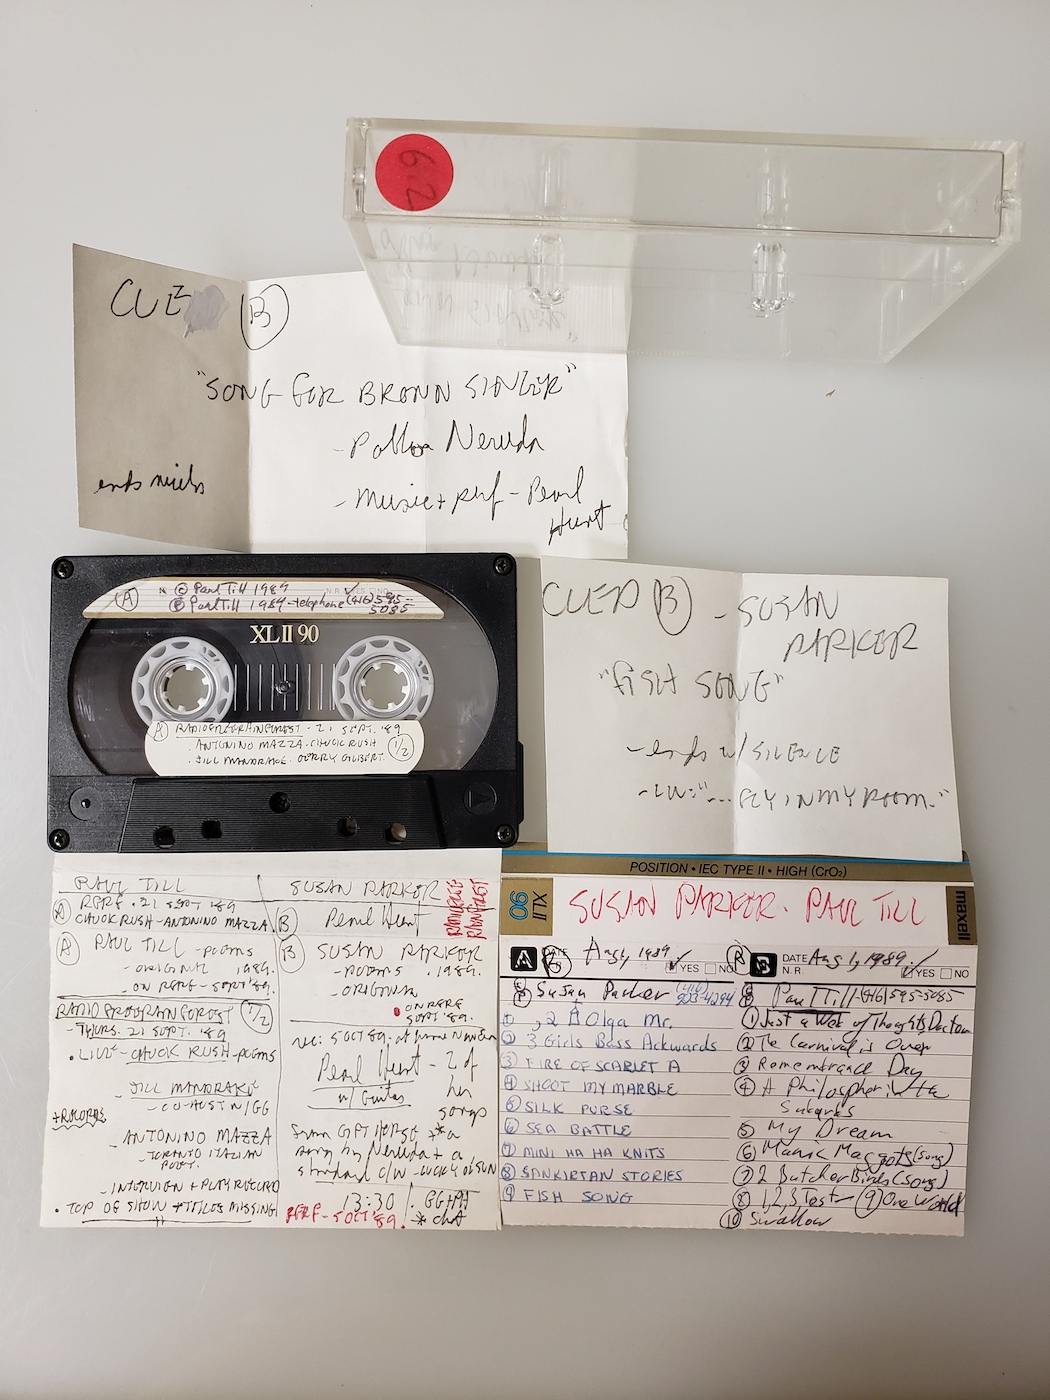 6.2
CUE B
"SONG FOR BROWN SINGER"
- Pablo Neruda
- Music + perf - Pearl
Hunt
ends
CUED B - SUSAN
PARKER
"FISH SONG"
- ends w/ SILENCE
- LW: "... FLY IN MY ROOM."
A N.R. © Paul Till 1989
℗ Paul Till 1989 - telephone (416) 595-
5085
XL II 90
A RADIO FREE RAINFOREST - 21 SEPT. '89
. ANTONINO MAZZA . CHUCK RUSH 1/2
. JILL MANDRAKE . GERRY GILBERT.
PAUL TILL
A RFRF . 21 SEPT '89
CHUCK RUSH - ANTONINO MAZZA
SUSAN PARKER
B Pearl Hunt
RADIO FREE
RAINFOREST
A PAUL TILL - POEMS
- ORIGINAL 1989.
- ON RFRF - SEPT, '89.
RADIO FREE RAINFOREST 1/2
- THURS. 21 SEPT. '89
. LIVE - CHUCK RUSH - POEMS
JILL MANDRAKE
- CO-HOST W/ GG
+ RECORDS
- ANTONINO MAZZA
- TORONTO ITALIAN
POET.
- INTERVIEW + PLAY RECORD
. TOP OF SHOW + TITLES MISSING
B SUSAN PARKER
- POEMS . 1989.
- ORIGINAL
ON RFRF
SEPT. '89.
rec: 5 OCT 89. at home
Pearl Hunt - 2 of
w/ Guitar her
songs
+ a
song by Neruda + a
standard c/w
13:30 GG + PH
RFRF - 5 OCT '89. * chat
POSITION • IEC TYPE II • HIGH (CrO₂)
XLII
90
SUSAN PARKER . PAUL TILL
maxell
A DATE Aug 1, 1989 YES NO
B DATE Aug 1, 1989. YES NO
N.R.
Susan Parker (416)
923-4294
① , 2 A Olga Mr.
② 3 Girls Bass Ackwards
③ FIRE OF SCARLET A
④ SHOOT MY MARBLE
⑤ SILK PURSE
⑥ SEA BATTLE
⑦ MINI HA HA KNITS
⑧ SANKIRTAN STORIES
⑨ FISH SONG
Paul Till - (416) 595-5085
① Just a Web of Thoughts, Doctor
② The Carnival is Over
③ Remembrance Day
④ A Philospher in the
Suburbs
⑤ My Dream
⑥ Manic Maggots (song)
⑦ 2 Butcher Birds (song)
⑧ 1,2,3 Test ⑨ One World
⑩ Swallow